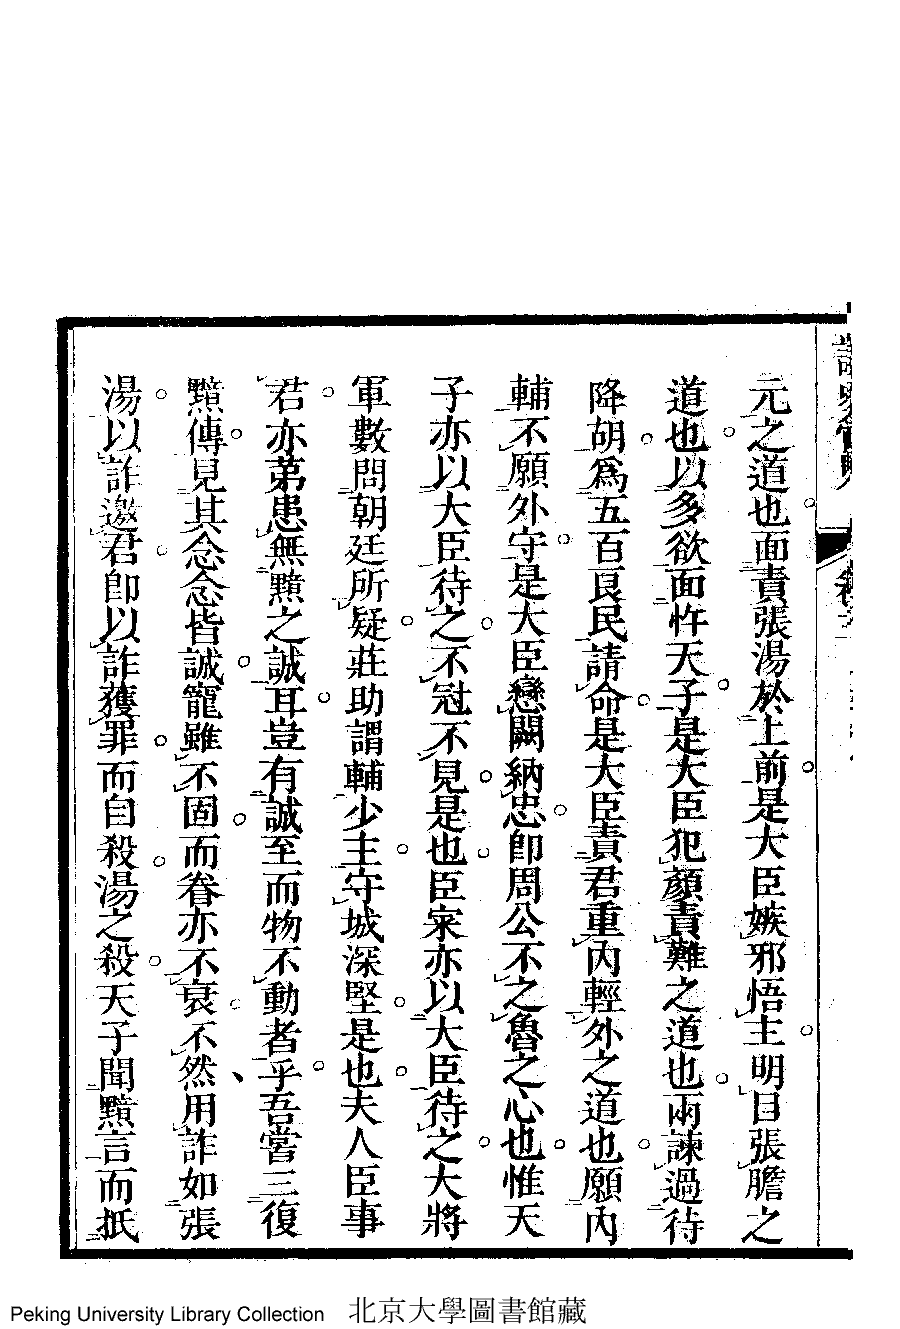 元之道也面責張湯於上前是大臣嫉邪悟主明目張膽之
道也以多欲面忤天子是大臣犯顏責難之道也兩諫過待
降胡爲五百良民請命是大臣責君重內輕外之道也願內
輔不願外守是大臣戀闕納忠卽周公不之魯之心也惟天
子亦以大臣待之不冠不見是也臣寀亦以大臣待之大將
軍數問朝廷所疑莊助謂輔少主守城深堅是也夫人臣事
君亦第患無黯之誠耳豈有誠至而物不動者乎吾嘗三復
黯傳見其念念皆誠寵雖不固而眷亦不衰不然用詐如張
湯以詐邀君卽以詐獲罪而自殺湯之殺天子聞黯言而抵
Peking University Library Collection 北京大學圖書館藏